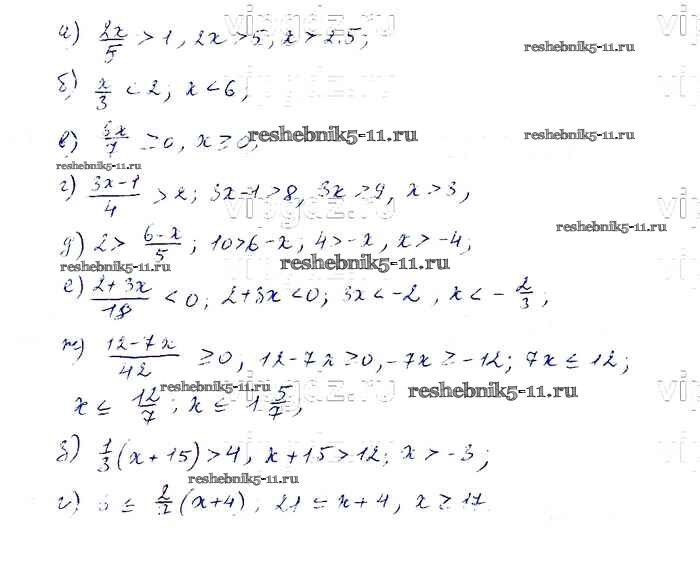 а) 2x/5 > 1, 2x > 5, x > 2.5;
reshebnik5-11.ru
б) x/3 < 2; x < 6;
в) 3x/7 ≥ 0, x ≥ 0;
reshebnik5-11.ru
reshebnik5-11.ru
reshebnik5-11.ru
г) (3x-1)/4 > 2; 3x-1 > 8, 3x > 9, x > 3,
reshebnik5-11.ru
д) 2 > (6-x)/5; 10 > 6-x, 4 > -x, x > -4;
reshebnik5-11.ru
reshebnik5-11.ru
е) (2+3x)/18 < 0; 2+3x < 0; 3x < -2, x < -2/3;
ж) (12-7x)/42 ≥ 0, 12-7x ≥ 0, -7x ≥ -12; 7x ≤ 12;
reshebnik5-11.ru
reshebnik5-11.ru
x ≤ 12/7; x ≤ 1 5/7;
з) 1/3(x+15) > 4, x+15 > 12; x > -3;
reshebnik5-11.ru
и) ≤ (x+4); 21 ≤ x+4, x ≥ 17